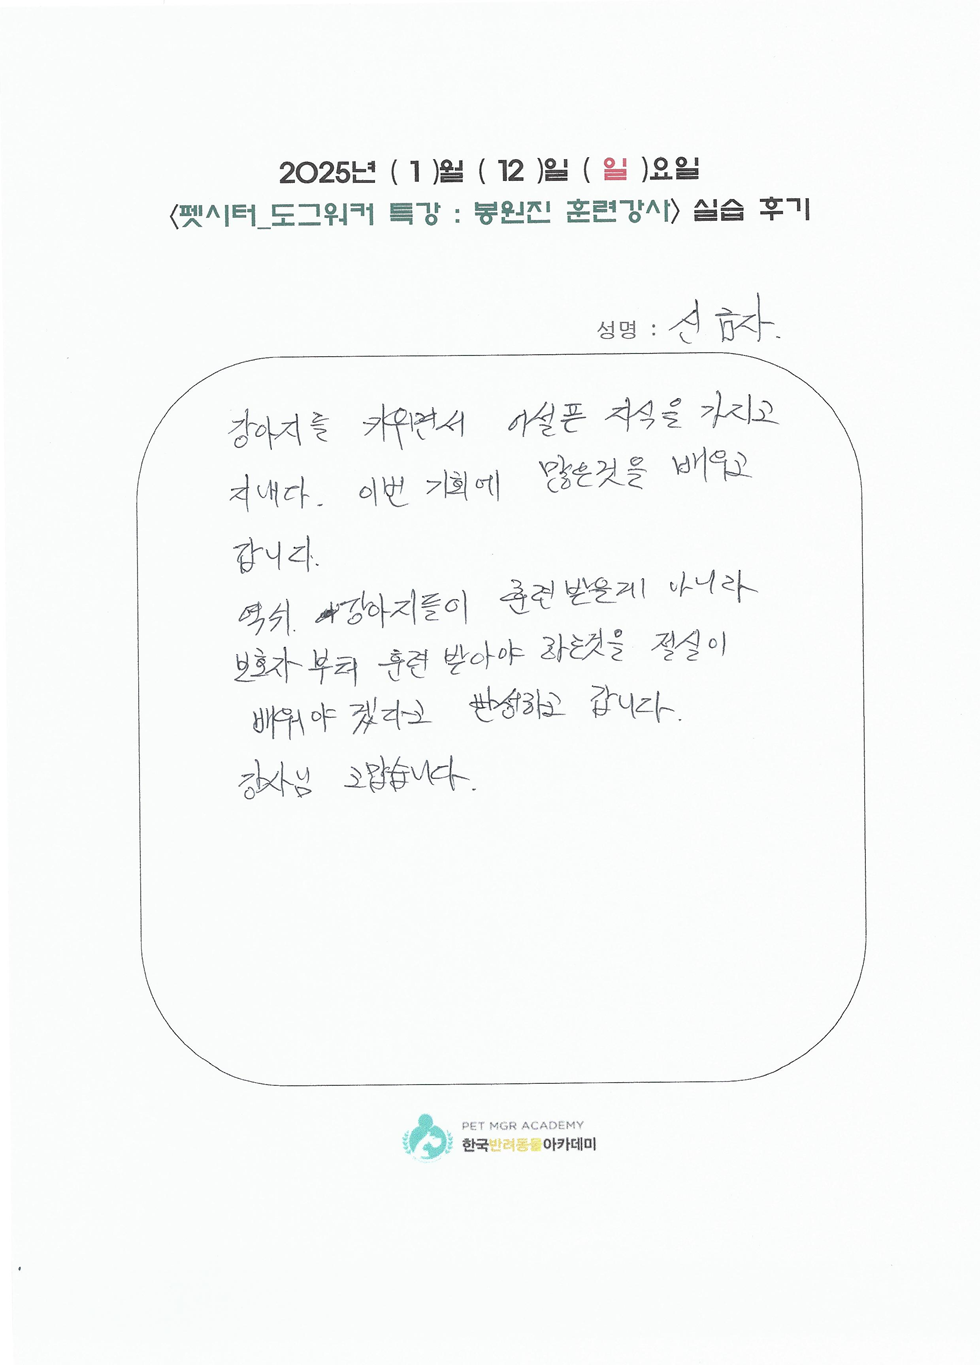 2025년 ( 1 )월 ( 12 )일 ( 일 )요일
<펫시터_도그워커 특강 : 봉원진 훈련강사> 실습 후기
성명 : 신금자.
강아지를 키위면서 어설픈 지식을 가지고
지내다. 이번 기회에 많은것을 배우고
갑니다.
역쉬. 강아지들이 훈련받을게 아니라
보호자부터 훈련 받아야 하는것을 절실이
배워야 겠다고 반성하고 갑니다.
강사님 고맙습니다.
PET MGR ACADEMY
한국반려동물아카데미